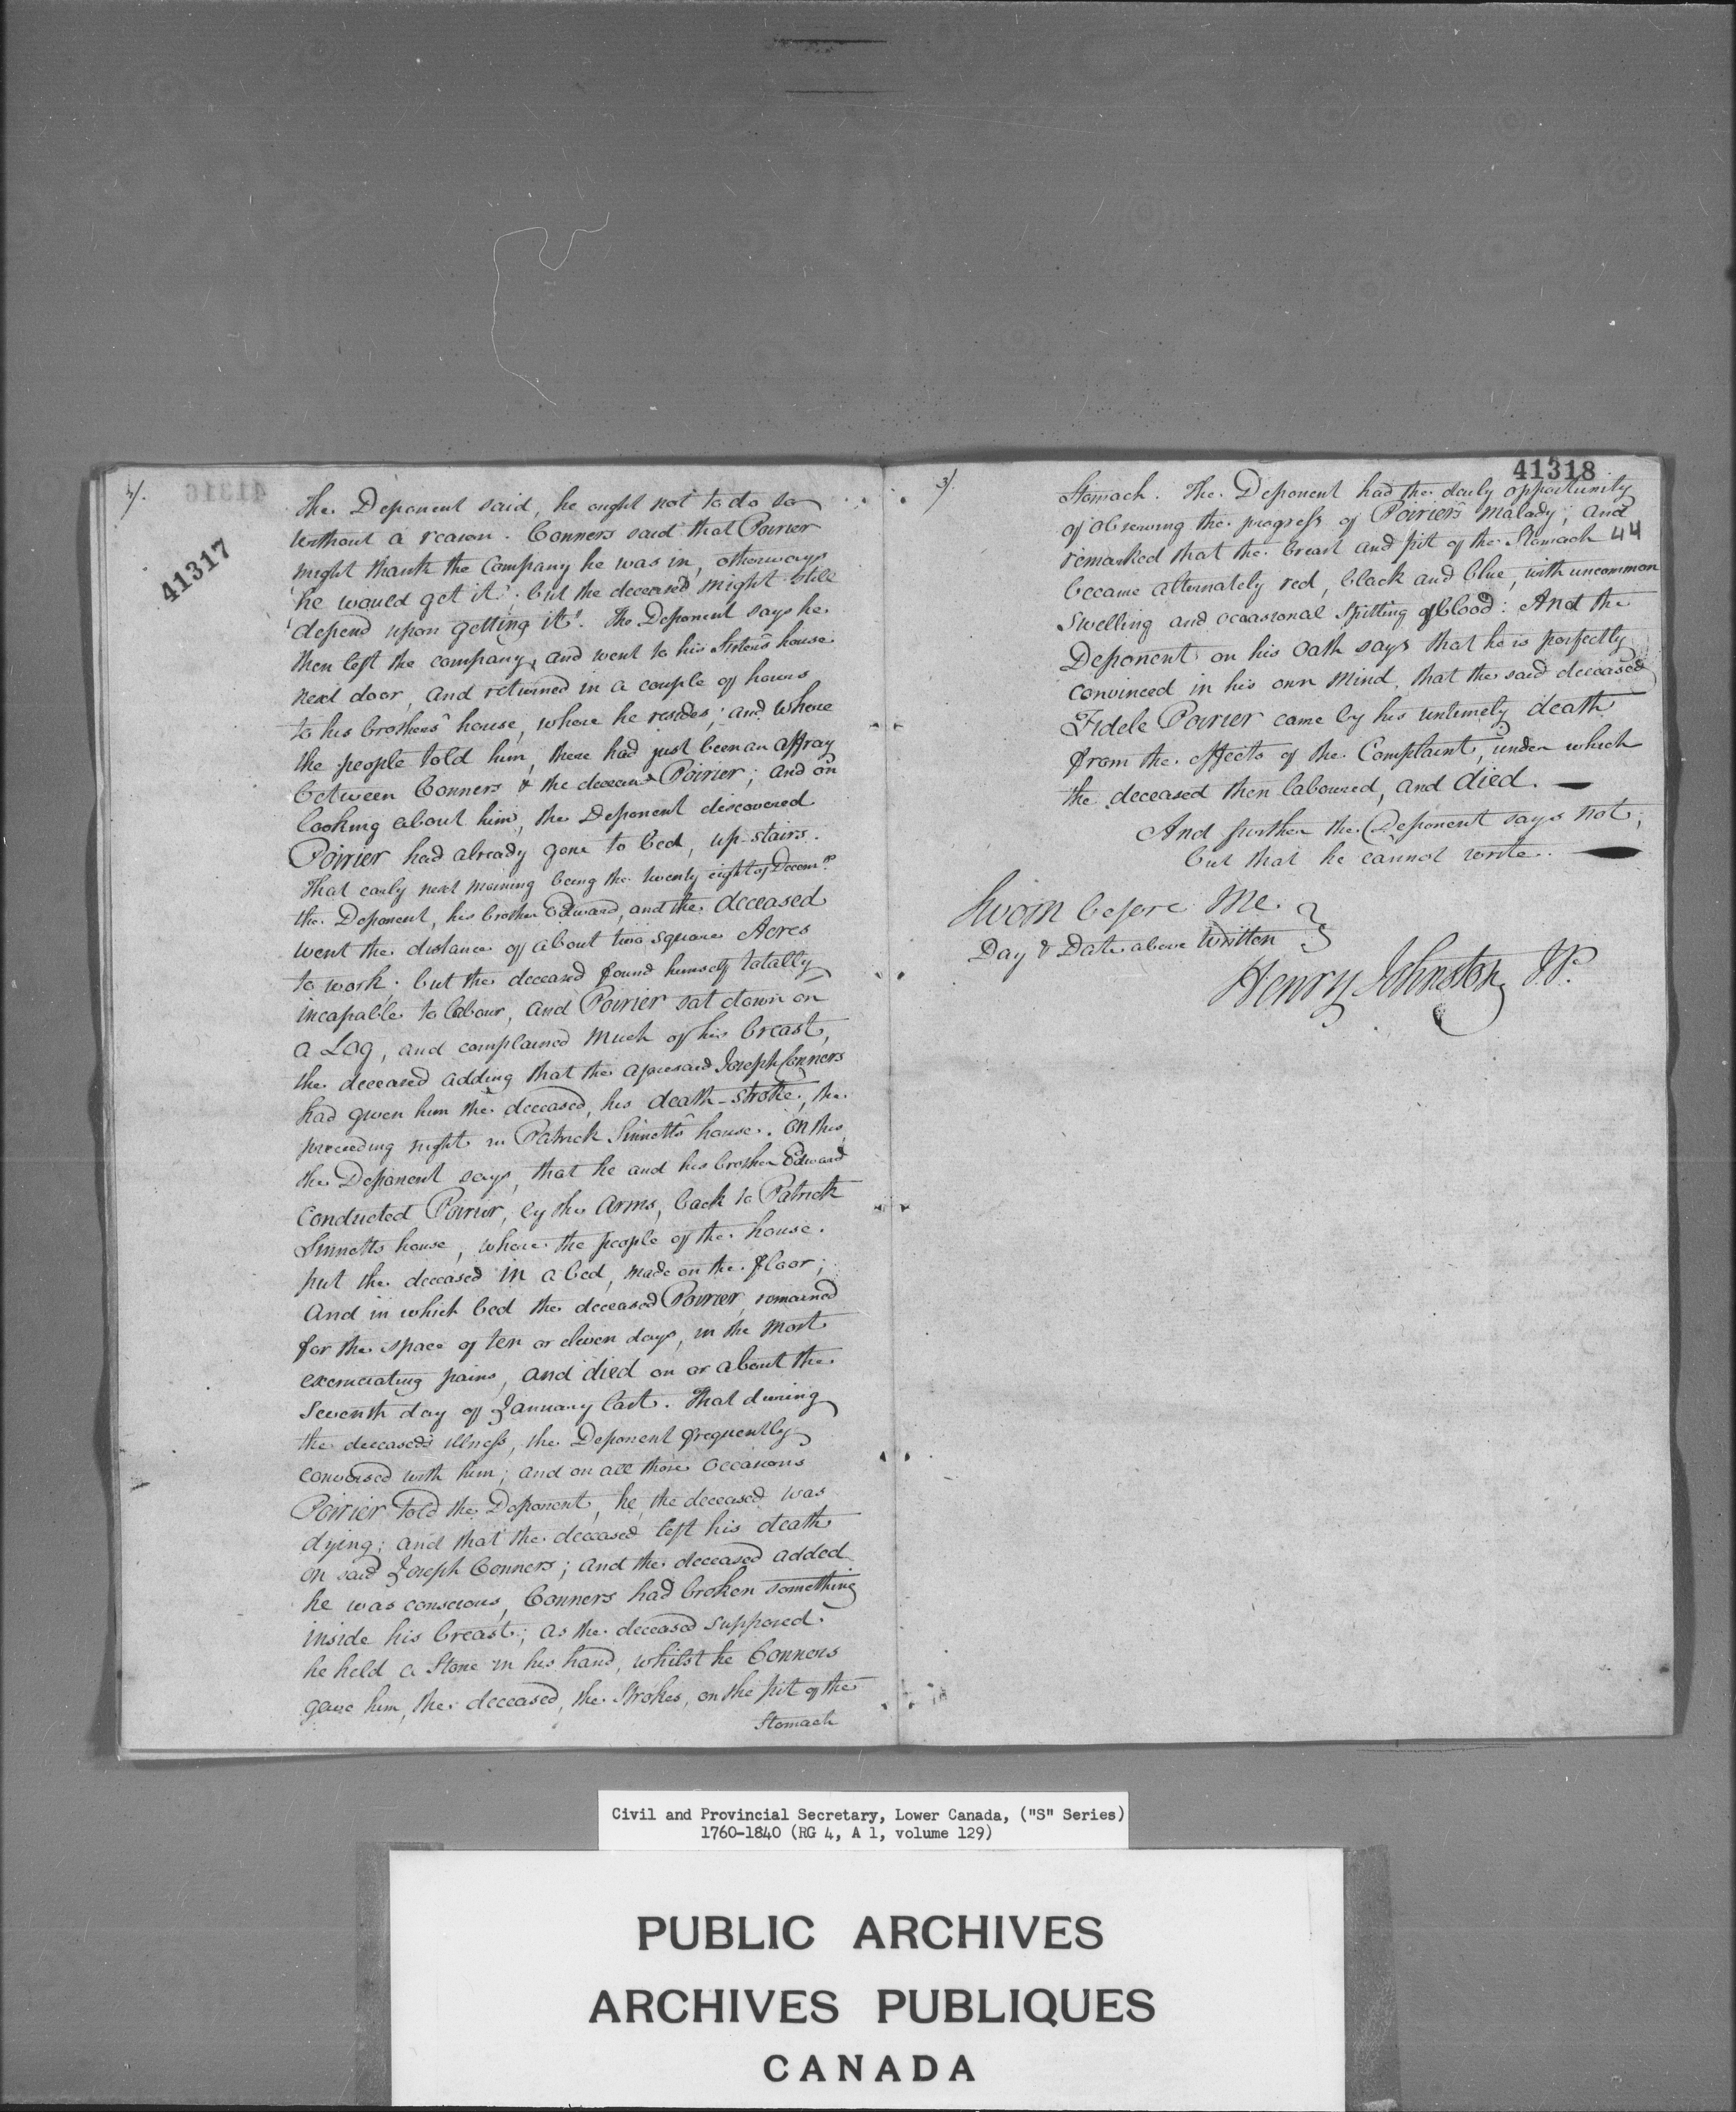 2/.
41317
The Deponent said, he ought not to do so
without a reason. Conners said that Poirier
might thank the Company he was in, otherways
"he would get it"; but the deceased might still
"depend upon getting it". The Deponent says he
then left the company, and went to his Sister's house
next door, and returned in a couple of hours
to his brother's house, where he resides; and where
the people told him, there had just been an affray
between Conners & the deceased Poirier; and on
looking about him, the Deponent discovered
Poirier had already gone to bed, up-stairs.
That early next morning being the twenty eight of Decemr.
the Deponent, his brother Edward, and the deceased
went the distance of about two square Acres
to work; but the deceased found himself totally
incapable to labour, and Poirier sat down on
a Log, and complained much of his breast,
the deceased adding that the aforesaid Joseph Conners
had given him the deceased, his death-stroke, the
preceeding night in Patrick Sinnett's house. On this
the Deponent says, that he and his brother Edward
conducted Poirier, by the arms, back to Patrick
Sinnetts house, where the people of the house
put the deceased in a bed, made on the floor;
And in which bed the deceased Poirier remained
for the space of ten or eleven days, in the most
excruciating pains, and died on or about the
Seventh day of January last. That during
the deceased's illness, the Deponent frequently
conversed with him; and on all those occasions
Poirier told the Deponent, he, the deceased was
dying; and that the deceased left his death
on said Joseph Conners; and the deceased added
he was conscious, Conners had broken something
inside his breast; as the deceased supposed
he held a Stone in his hand, whilst he Conners
gave him, the deceased, the Strokes, on the pit of the
Stomach
3/.
41318
44
Stomach. The Deponent had the daily opportunity
of observing the progress of Poirier's malady; and
remarked that the breast and pit of the Stomach
became alternately red, black and blue, with uncommon
Swelling and occasional Spitting of blood: And the
Deponent on his Oath says that he is perfectly
convinced in his own mind, that the said deceased
Fidele Poirier came by his untimely death
from the effects of the Complaint, under which
the deceased then laboured, and died. —
And further the Deponent says not;
but that he cannot write. —
Sworn before Me
Day & Date above written }
Henry Johnston J.P.
Civil and Provincial Secretary, Lower Canada, ("S" Series)
1760-1840 (RG 4, A 1, volume 129)
PUBLIC ARCHIVES
ARCHIVES PUBLIQUES
CANADA